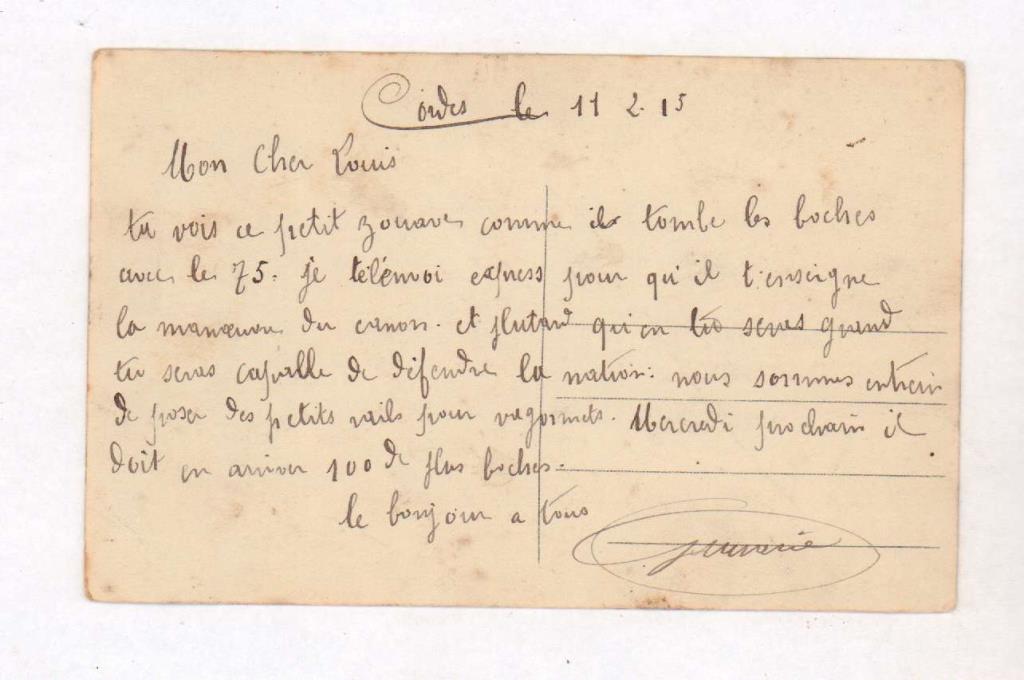 Cordes le 11 2. 15
Mon Cher Louis
tu vois ce petit zouave comme il tombe les boches
avec le 75. je télénvoi express pour qu'il t'enseigne
la manœuvre du canon. et plutard qu'en tu seras grand
tu seras capable de défendre la nation: nous sommes entrein
de poser des petits rails pour vagonnets. Mercredi prochain il
doit en arriver 100 de plus boches.
le bonjour a tous